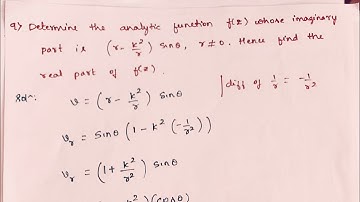 9) Determine the analytic function f(z) whose imaginary
part is (r - k²/r) sinθ, r ≠ 0. Hence find the
real part of f(z).
Sol^n:
v = (r - k²/r) sinθ
| diff of 1/r = -1/r²
v_r = sinθ (1 - k² (-1/r²))
v_r = (1 + k²/r²) sinθ
k²)(cosθ)